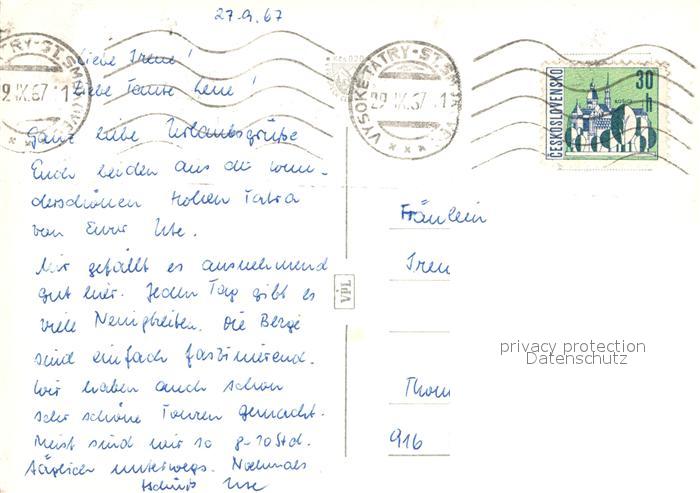 27.9.67
Liebe Irene!
Liebe Tante Lene!
Ganz liebe Urlaubsgrüße
Euch beiden aus der wun-
derschönen Hohen Tatra
von Eurer Ute.
Mir gefällt es ausnehmend
gut hier. Jeden Tag gibt es
viele Neuigkeiten. Die Berge
sind einfach faszinierend.
Wir haben auch schon
sehr schöne Touren gemacht.
Meist sind wir so 8-10 Std.
täglich unterwegs. Nochmals
tschüß Ute
TRY-ST.SM
29.IX.67.1
VYSOKÉ TATRY-ST.SM
29.IX.67.1
ČESKOSLOVENSKO
30
h
VPL
Fräulein
Iren
Thom
916
privacy protection
Datenschutz